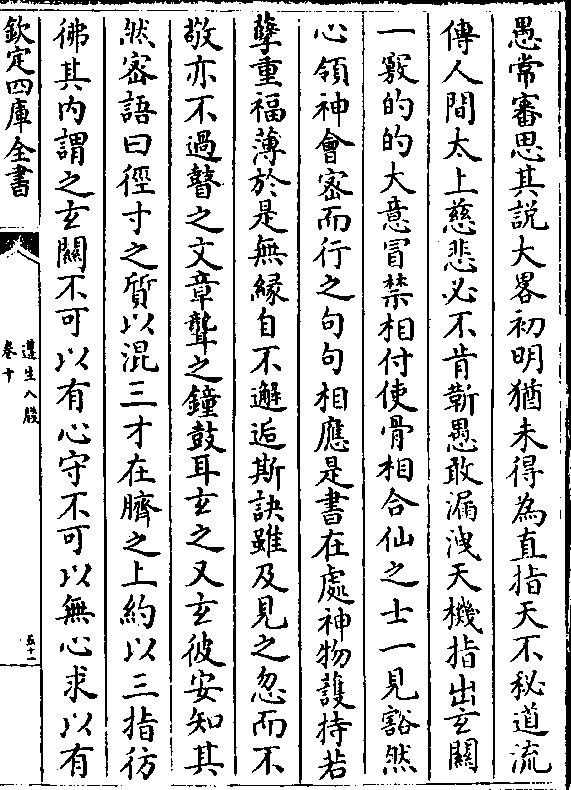 愚常審思其説大畧初明猶未得為直指天不秘道流
傳人間太上慈悲必不肯靳愚敢漏洩天機指出玄關
一竅的的大意冒禁相付使骨相合仙之士一見豁然
心領神會宻而行之句句相應是書在處神物護持若
孽重福薄於是無縁自不邂逅斯訣雖及見之忽而不
敬亦不過瞽之文章聾之鐘鼓耳玄之又玄彼安知其
然宻語曰徑寸之質以混三才在臍之上約以三指彷
彿其内謂之玄關不可以有心守不可以無心求以有
欽定四庫全書
遵生八牋
卷十
五十二